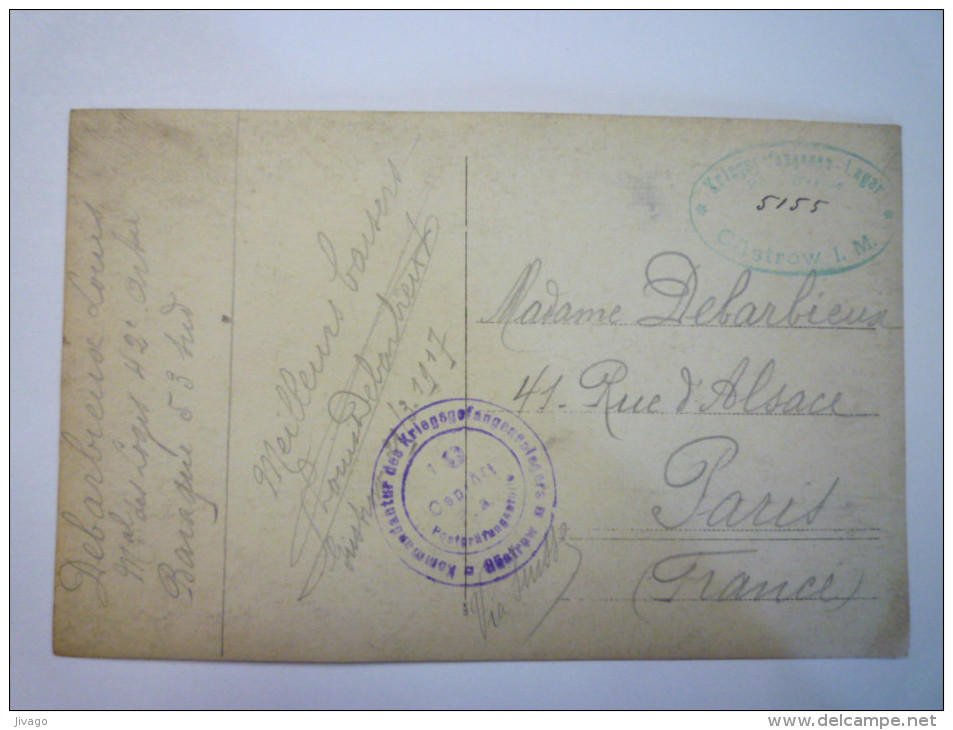 Debarbieux Louis
Mal des logis 42e Artie
Baraque 53 Sud
Meilleurs baisers
Louis Debarbieux
1917
* Kriegsgefangenen-Lager *
Güstrow I. M.
5155
Madame Debarbieux
41 - Rue d'Alsace
Paris
(France)
Via Suisse
Kommandantur des Kriegsgefangenenlagers
Güstrow
Geprüft
Postprüfungsstelle
Jivago
www.delcampe.net